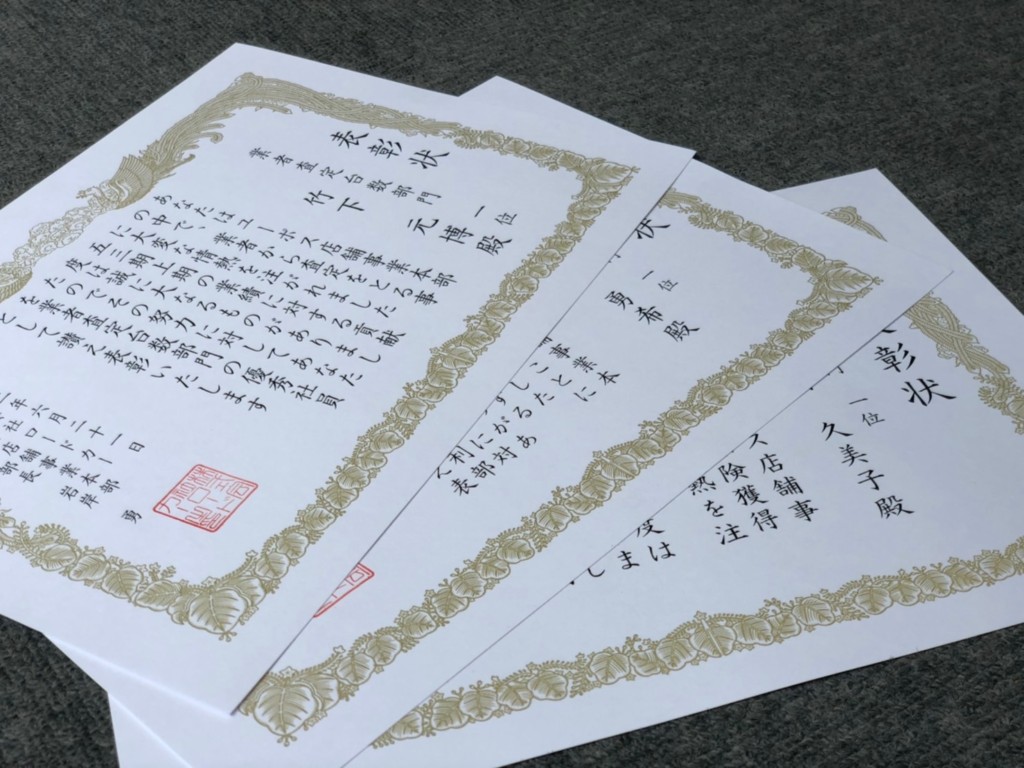 表彰状
業者査定台数部門 一位
竹下 元博殿
あなたはユーポス店舗事業本部
の中で、業者から査定をとる事
に大変な情熱を注がれました
五三期上期の業績に対する貢献
度は誠に大なるものがありまし
たのでその努力に対してあなた
を業者査定台数部門の優秀社員
として 讃え表彰いたします
年六月二十一日
社ロードカー
店舗事業本部
部長 岩岸 勇
状
一位
勇希殿
事業本
状
彰状
一位
久美子殿
ス店舗事
険獲得
熱を注
は
しま